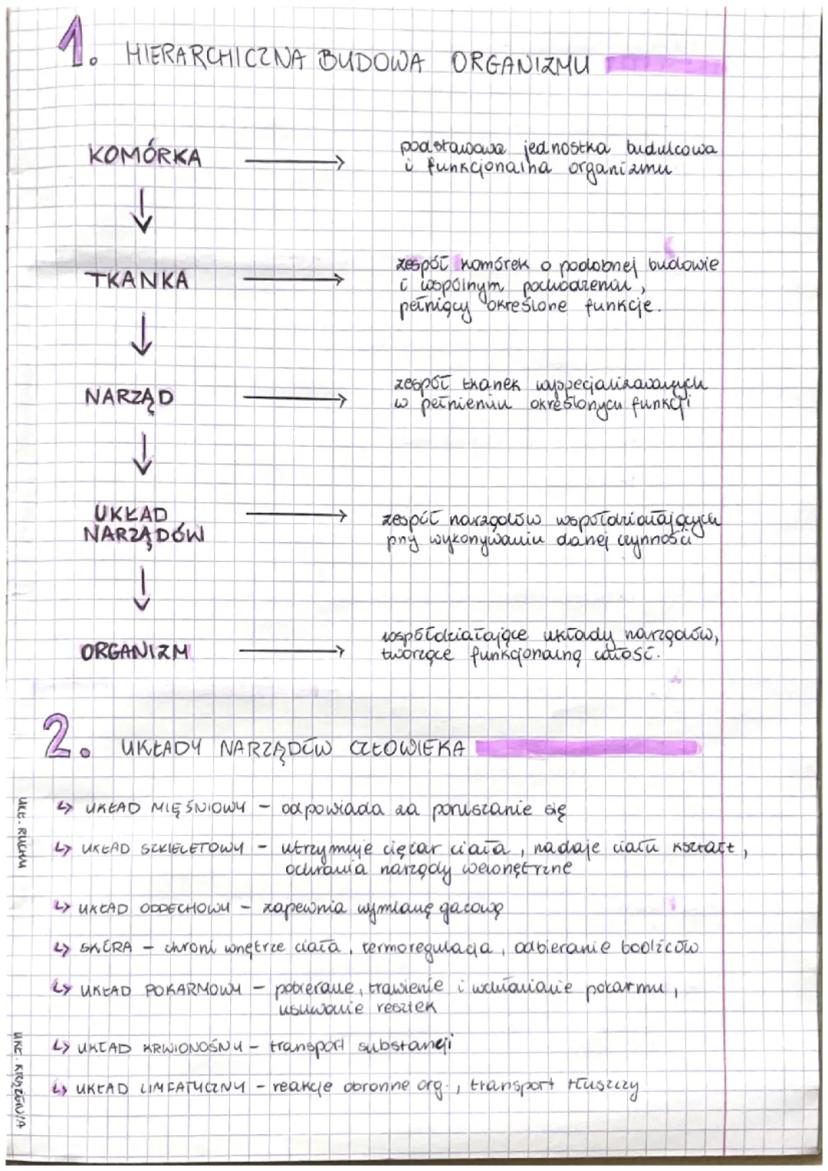 1. HIERARCHICZNA BUDOWA ORGANIZMU
KOMÓRKA → podstawowa jednostka budulcowa
i funkcjonalna organizmu
↓
TKANKA → zespół komórek o podobnej budowie
i wspólnym pochodzeniu,
pełniący określone funkcje.
↓
NARZĄD → zespół tkanek wyspecjalizowanych
w pełnieniu określonych funkcji
↓
UKŁAD
NARZĄDÓW → zespół narządów współdziałających
przy wykonywaniu danej czynności
↓
ORGANIZM → współdziałające układy narządów,
tworzące funkcjonalną całość.
2. UKŁADY NARZĄDÓW CZŁOWIEKA
UKŁ. RUCHU
↳ UKŁAD MIĘŚNIOWY – odpowiada za poruszanie się
↳ UKŁAD SZKIELETOWY – utrzymuje ciężar ciała, nadaje ciału kształt,
ochrania narządy wewnętrzne
↳ UKŁAD ODDECHOWY – zapewnia wymianę gazową
↳ SKÓRA – chroni wnętrze ciała, termoregulacja, odbieranie bodźców
↳ UKŁAD POKARMOWY – pobieranie, trawienie i wchłanianie pokarmu,
usuwanie resztek
UKŁ. KRĄŻENIA
↳ UKŁAD KRWIONOŚNY – transport substancji
↳ UKŁAD LIMFATYCZNY – reakcje obronne org., transport tłuszczy